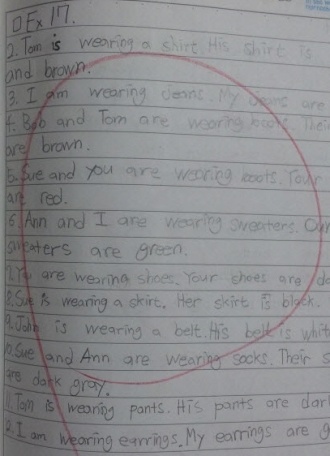 Ex 17.
2. Tom is wearing a shirt. His shirt is
and brown.
3. I am wearing jeans. My jeans are
4. Bob and Tom are wearing boots. Their
are brown.
5. Sue and you are wearing boots. Your
are red.
6. Ann and I are wearing sweaters. Our
sweaters are green.
7. You are wearing shoes. Your shoes are
8. Sue is wearing a skirt. Her skirt is black.
9. John is wearing a belt. His belt is
10. Sue and Ann are wearing socks. Their
are dark gray.
11. Tom is wearing pants. His pants are
12. I am wearing earrings. My earrings are